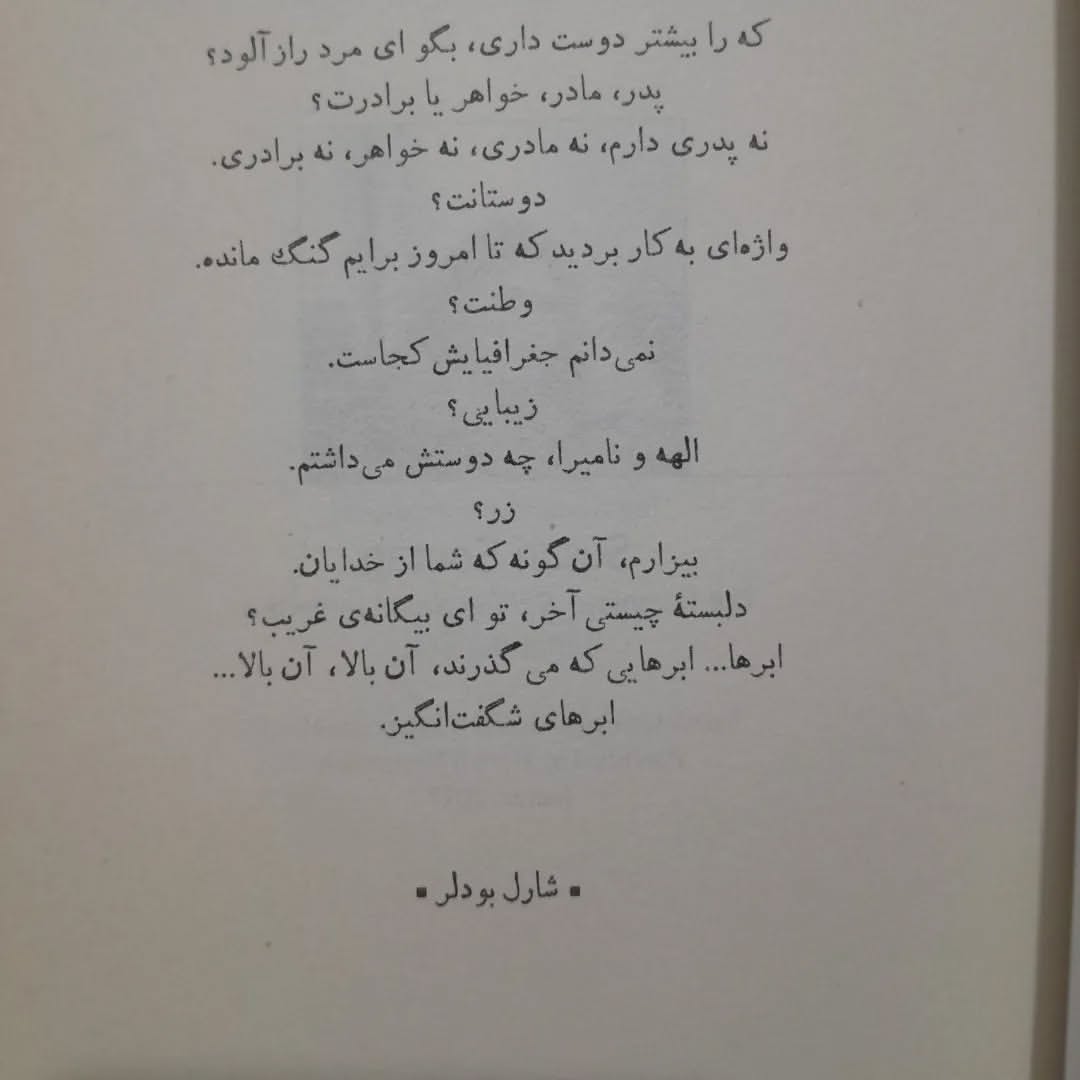 که را بیشتر دوست داری، بگو ای مرد رازآلود؟
پدر، مادر، خواهر یا برادرت؟
نه پدری دارم، نه مادری، نه خواهر، نه برادری.
دوستانت؟
واژه‌ای به کار بردید که تا امروز برایم گنگ مانده.
وطنت؟
نمی‌دانم جغرافیایش کجاست.
زیبایی؟
الهه و نامیرا، چه دوستش می‌داشتم.
زر؟
بیزارم، آن گونه که شما از خدایان.
دلبستهٔ چیستی آخر، تو ای بیگانه‌ی غریب؟
ابرها... ابرهایی که می گذرند، آن بالا، آن بالا...
ابرهای شگفت‌انگیز.
▪ شارل بودلر ▪